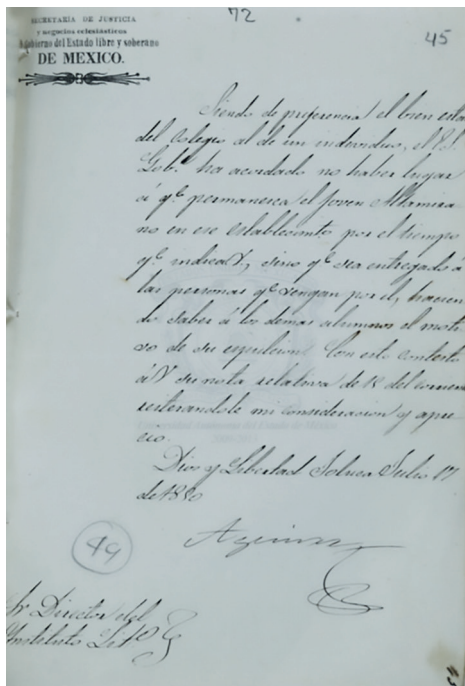 72
45
SECRETARIA DE JUSTICIA
y negocios eclesiásticos
Gobierno del Estado libre y soberano
DE MEXICO.
Siendo de preferencia el bien estar
del Colegio al de un individuo, el E. S.
Gobr. ha acordado no haber lugar
á qe. permanesca el joven Altamira
no en ese establecimto. por el tiempo
qe. indica V, sino qe. sea entregado á
las personas qe. vengan por él, hacien
do saber á los demas alumnos el moti
vo de su espulsion. Con esto contesto
á V su nota relativa de 12 del corriente
reiterandole mi consideracion y apre
cio.
Universidad Autónoma del Estado de México
Dios y Libertad Toluca Julio 17
de 1850
49
Sr Director del
Instituto Lito.